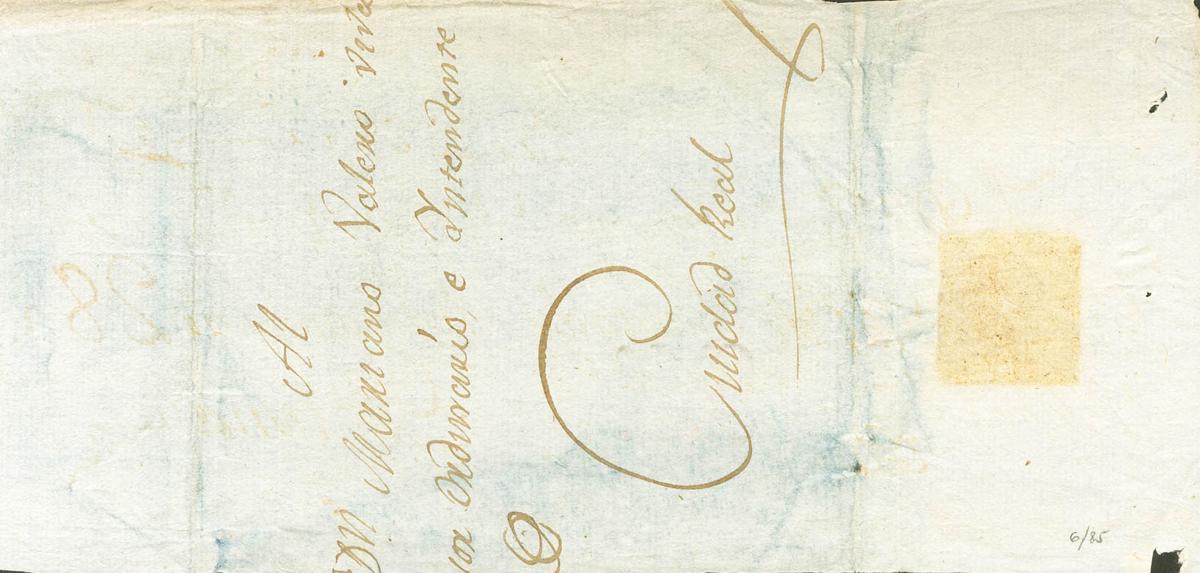 Al
Dn Mariano Valero
Ordinario, e Yntendente
Ciudad Real
6/85